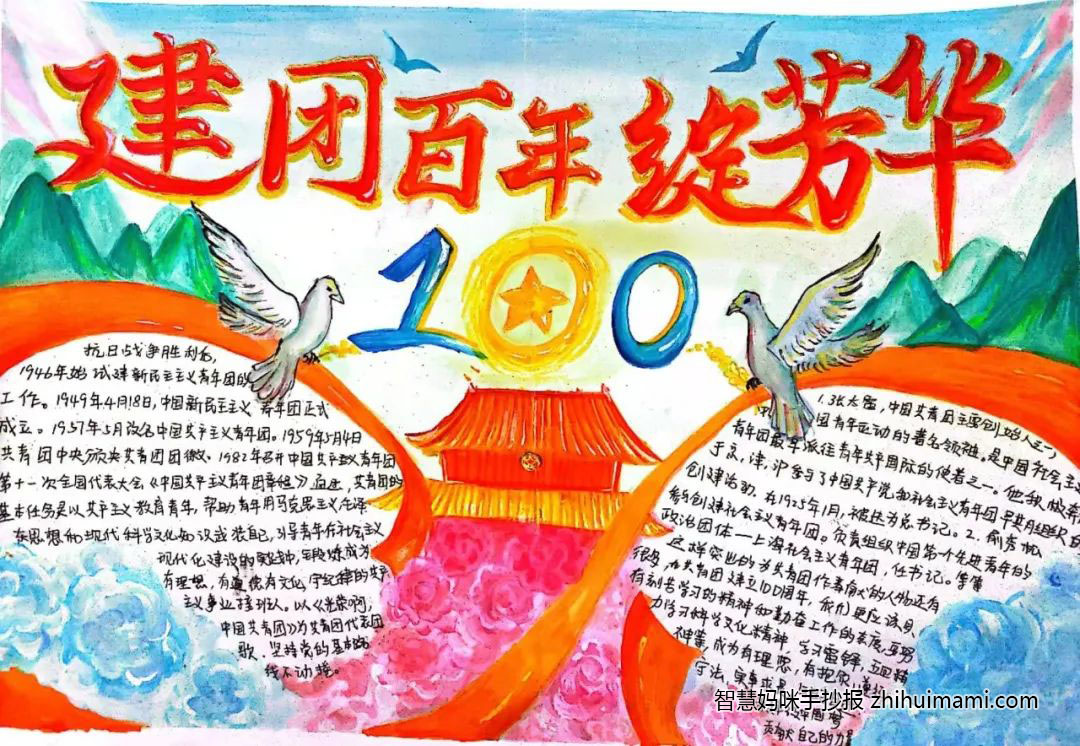 建团百年 绽芳华
100
抗日战争胜利后,
1946年始试建新民主主义青年团的
工作。1949年4月18日,中国新民主主义青年团正式
成立。1957年5月改名中国共产主义青年团。1959年5月4日
共青团中央颁央共青团团徽。1982年 中国共产主义青年团
第十一次全国代表大会《中国共产主义青年团章程》 共青团的
基本任务是以共产主义教育青年,帮助青年用马克思主义
在思想和现代科学文化知识武装自己,引导青年在社会主义
现代化建设的 中,锻炼成为
有理想,有道德有文化,守纪律的共产
主义事业接班人。以《光荣啊,
中国共青团》为共青团代表团
歌.坚持党的基本路
线不动摇。
1.张太雷,中国共青团主要创始人之一,
国青年运动的著名领袖。是中国社会主
青年团最早派往青年共产国际的使者之一。他积极
于京,津,沪参与了中国共产党和社会主义青年团早其月
创建活动,在1925年1月,被选为总书记。2.俞秀松
创建社会主义青年团。负责组织中国第一个先进青年的
政治团体—上海社会主义青年团,任书记。等等
这样突出的为共青团作着有大的人物还有
很多,在共青团建立100周年,我们更应该具
有刻苦学习的精神和勤奋工作的态度,要努
力学习科学文化精神,学习雷锋,
神等,成为有理想,有抱负,
守法,实事求是
贡献自己的力量
智慧妈咪手抄报 zhihuimami.com